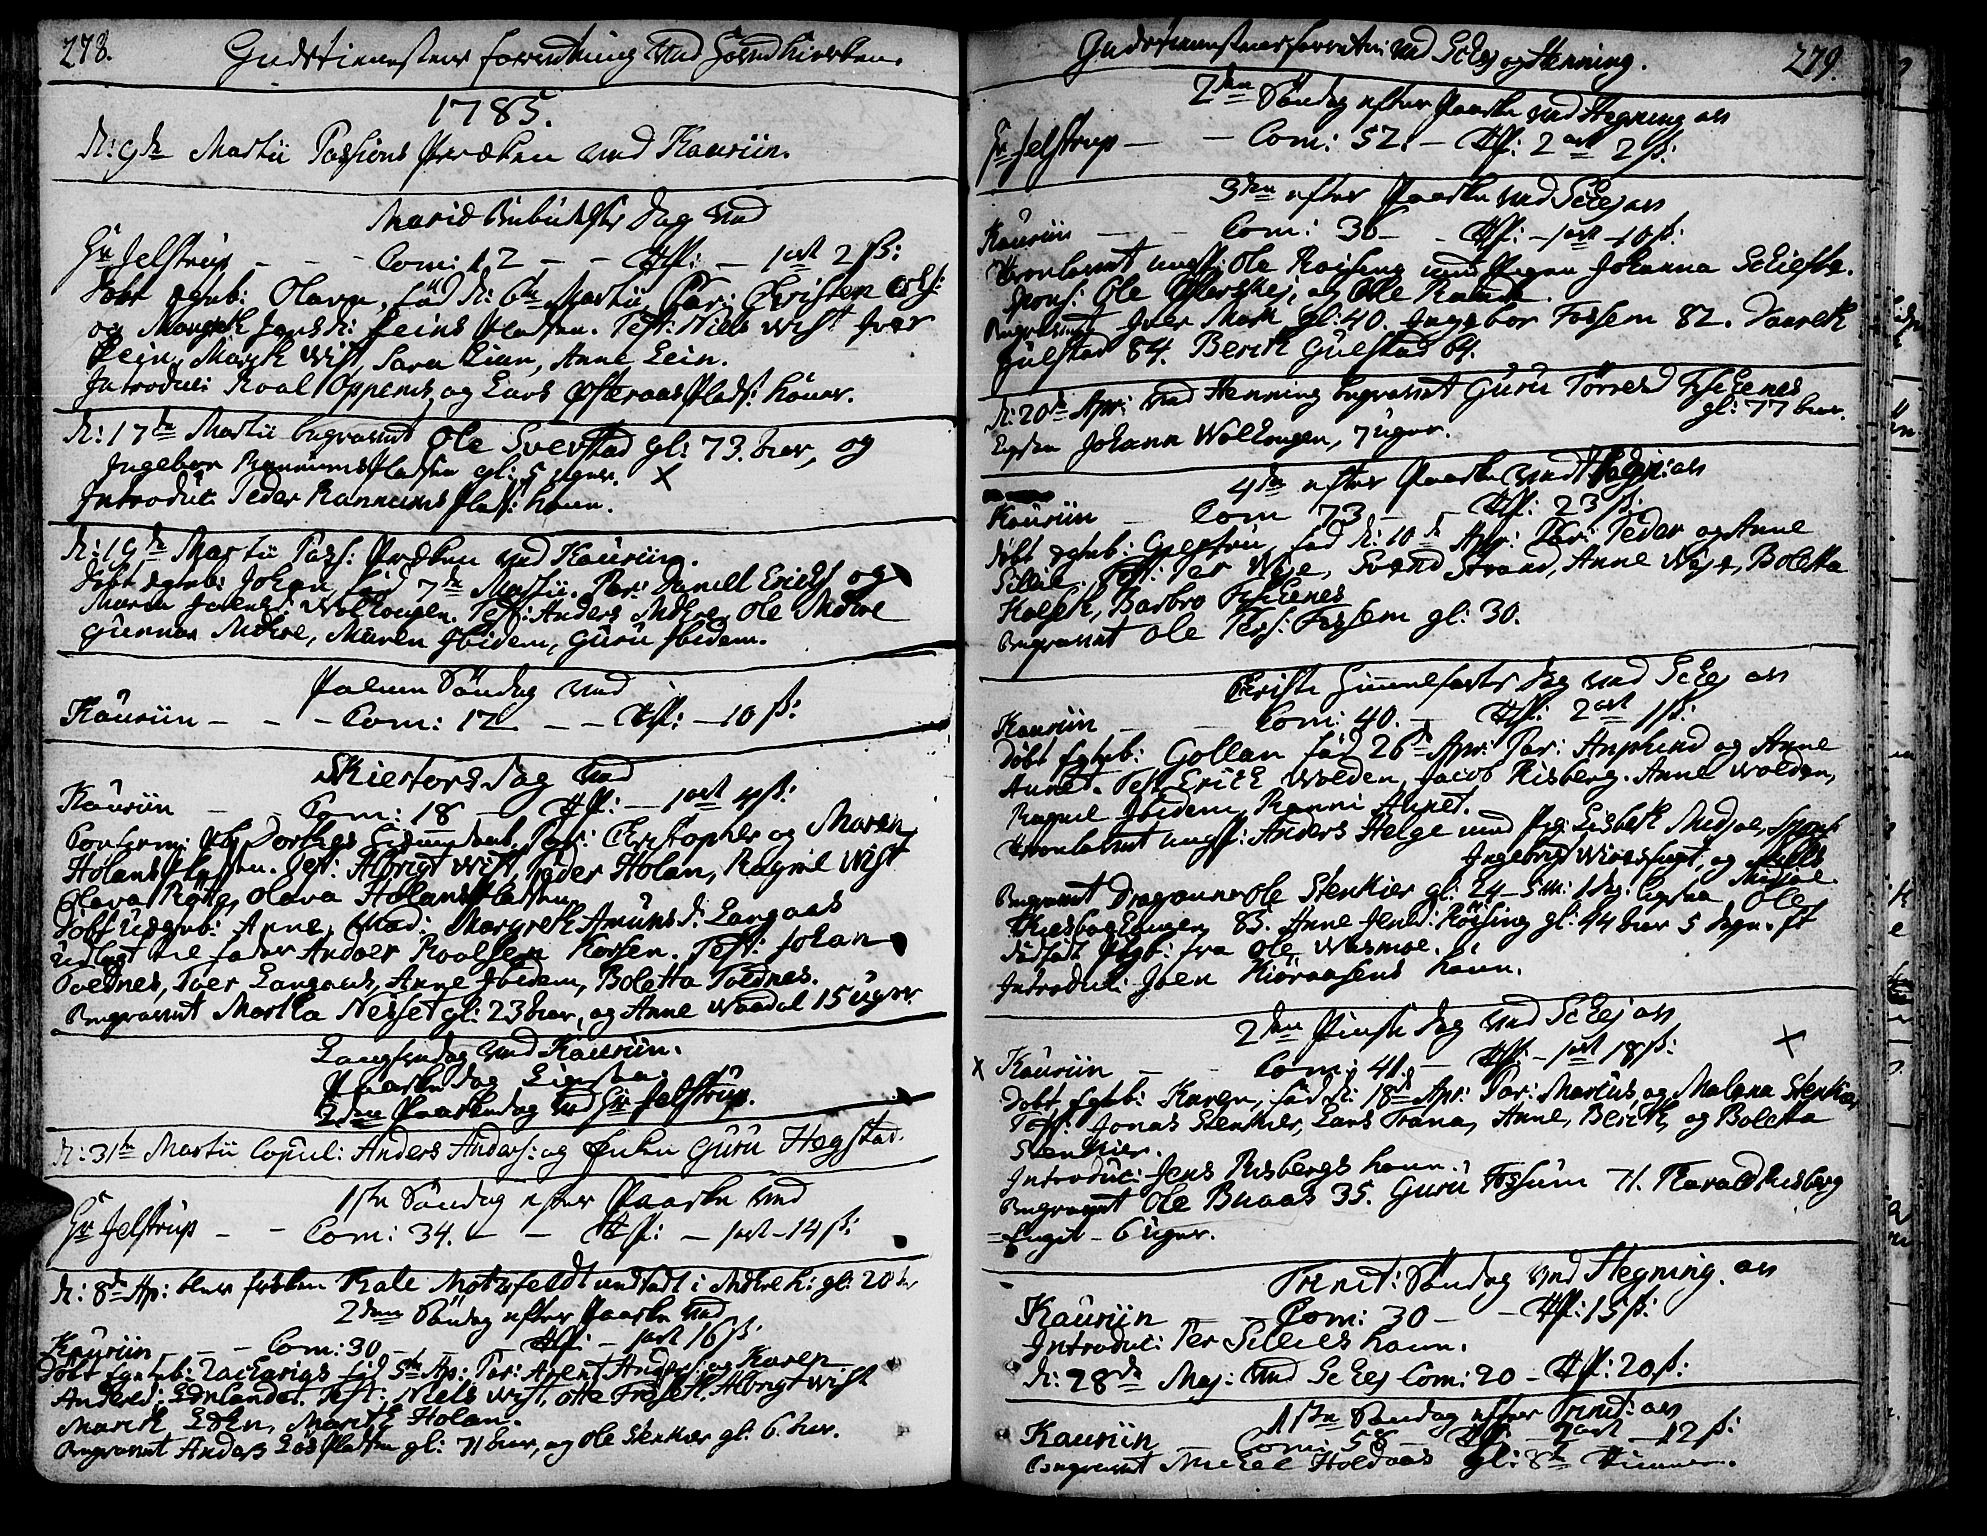 278. Gudstienestens forretning ved Hovedkierken.
1785.
d: 9de Martii Passions Præken ved Kauriin.
Mariæ Bebudelses Dag ved
Hr Jelstrup - - - Com: 12 - - Off: - 1ort 2 ss:
Døbt ægteb: Olava, fød d: 6te Martii, Par: Christen Ols:
og Margeth Jensd: Leins pladsen. Test: Niels Wist Iver
Lein, Mareth Wist, Sara Lein, Anne Lein.
Introduc: Roal Oppems, og Lars Østeraas Plads: koner.
d: 17de Martii begravet Ole Sverstad gl: 73. aar, og
Ingebor Rannums pladsen gl: 5 uger. x
Introduc: Peder Rannums plads: kone.
d: 19de Martii Pass: Præken ved Kauriin.
Døbt ægteb: Johan, fød 7de Martii. Par: Daniel Erichs: og
Maren Jensd: Wollougen. Test: Anders Mære, Ole Mære
Gunnar Mære, Maren Ibidem, Guru Ibidem.
Palme Søndag ved
Kauriin - - - Com: 12 - - Off: - 10 ss:
Skiertorsdag ved
Kauriin - Com: 18 - Off: - 1ort 4 ss:
Holans Pladsen. Test: Albrigt Wist, Peder Holan, Ragnil Wist
Olava Røtte, Olava Holans pladsen.
Døbt uægteb: Anne, Mod: Margreth Amunsd: Langaas
udlagt til fader Andoer Roalsen Korsen. Test: Johan
Toednes, Iver Langaas, Anne Ibidem, Boletta Toednes.
Begravet Martha Nesset gl: 23 aar, og Anne Waadal 15 uger.
Langfredag ved Kauriin.
Paaskedag Ligesaa.
2den Paaskedag ved Hr Jelstrup.
d: 31te Martii Copul: Anders Anders: og Enke Guru Hegstad.
1ste Søndag efter Paaske ved
Hr Jelstrup - - Com: 34. - - Off: - 1ort - 14 ss:
d: 8de Ap: blev frøken Kale Motzfeldt nedsadt i Mære k: gl: 20 aar
2den Søndag efter Paaske ved
Kauriin - - - Com: 30 - - - Off: - 1ort 16 ss:
Døbt Egteb: Zacharias fød 5te Ap: Par: Arent Anders: og Karen
Andersd: Ednlandet. Test: Niels Wist, Ole Albrigt Wist
Mareth Lein, Mareth Holan.
Begravet Anders Løs pladsen gl: 71 aar, og Ole Stenkier gl: 6. aar.
Gudstienestens forretn: ved Schej og Henning. 279.
2den Søndag efter Paaske ved Hegning an
Hr Jelstrup - - Com: 52. - Off: 2 ort 2 ss:
3den efter Paaske ved Schej an
Kauriin - - Com: 36 - - Off: - 1ort - 10 ss:
Trolovet ungk: Ole Roising med Pigen Johanna Schiefte.
Spons: Ole og Ole
Begravet Iver Moen gl: 40. Ingebor Fossem 82. Daareth
Gulstad 84. Bereth Gulstad 64.
d: 20de Apr: ved Henning begravet Guru Tørresd Fischenes
gl: 77 aar.
Ligesaa Johann Wollougen, 7 uger.
4de efter Paaske ved Hegn: an
Kauriin - Com 73 - - Off: 23 ss:
Døbt ægteb: fød d: 10de Apr: Par: Peder og Anne
Sillie. Test: Per Weje, Svend Strand, Anne Weje, Boletta
Kolset, Barbro Fischenes
Begravet Ole Pers: Fossem gl: 30.
Christi Himmelfarts Dag ved Schej an
Kauriin - Com: 40. - Off: 2 ort 1 ss:
Døbt Egteb: Gollan fød 26de Apr: Par: Anphind og Anne
Aunet. Test: Erich Wolden, Jacob Risberg. Anne Wolden,
Ragnil Ibidem, Ranni Aunet.
Trolovet ungk: Anders Helge med Pig: Lisbeth Midjoe, Spons:
Ingebrigt og Niels
Midjoe.
Begravet Dragoun Ole Stenkier gl: 24 - 5 m: 1 dag. Ligesaa Ole
83. Anne Jensd: Røising gl: 44 aar 5 dage. Et
dødfødt Pigb: fra Ole Wasmoe.
Introduc: Joen Kioraasens kone.
2den Pintse Dag ved Schej an
x Kauriin - - Com: 41. - Off: - 1ort 18 ss: x
Døbt Egteb: Karen, fød d: 18de Apr: Par: Marcus, og Malena Stenkier
Test: Jonas Stenkier, Lars Trana, Anne, Bereth, og Boletta
Stenkier.
Introduc: Jens Risbergs kone.
Begravet Ole Buaas 35. Guru Fossum 71. Harald Risberg
- 6 uger.
Trinit: Søndag ved Hegning. an
Kauriin - Com: 30 - - Off: 15 ss:
Introduc: Per Sillies kone.
d: 28de Maj: ved Schej Com: 20 - Off: 20 ss:
1ste Søndag efter Trinit: an
Kauriin - Com: 58 - Off: - 2 ort - 12 ss:
Begravet Michel Holdaas gl: 8